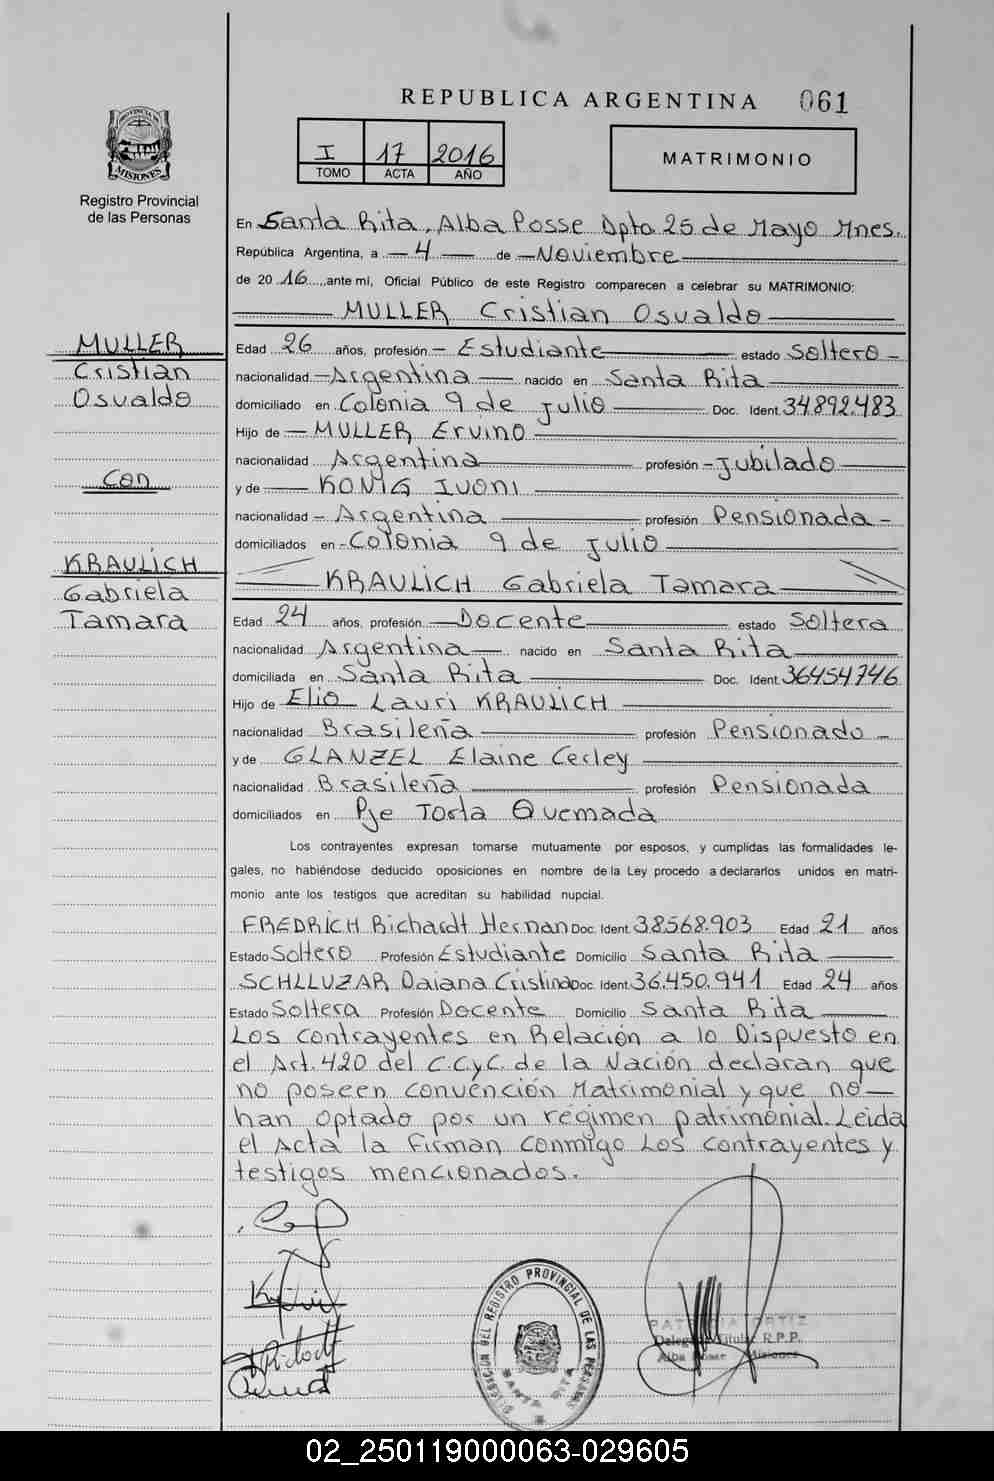 REPUBLICA ARGENTINA 061
PROVINCIA DE MISIONES
Registro Provincial
de las Personas
I 17 2016
TOMO ACTA AÑO
MATRIMONIO
En Santa Rita, Alba Posse Dpto 25 de Mayo Mnes.
República Argentina, a 4 de Noviembre
de 20 16, ante mi, Oficial Público de este Registro comparecen a celebrar su MATRIMONIO:
MULLER Cristian Osvaldo
MULLER
Cristian
Osvaldo
Con
KRAULICH
Gabriela
Tamara
Edad 26 años, profesión Estudiante estado Soltero
nacionalidad Argentina nacido en Santa Rita
domiciliado en Colonia 9 de Julio Doc. Ident. 34.892.483
Hijo de MULLER Ervino
nacionalidad Argentina profesión Jubilado
y de KONIG IVONI
nacionalidad Argentina profesión Pensionada
domiciliados en Colonia 9 de Julio
KRAULICH Gabriela Tamara
Edad 24 años, profesión Docente estado Soltera
nacionalidad Argentina nacido en Santa Rita
domiciliada en Santa Rita Doc. Ident. 36454746
Hijo de Elio Lauri KRAULICH
nacionalidad Brasileña profesión Pensionado
y de GLANZEL Elaine Cecley
nacionalidad Brasileña profesión Pensionada
domiciliados en Pje Torta Quemada
Los contrayentes expresan tomarse mutuamente por esposos, y cumplidas las formalidades le-
gales, no habiéndose deducido oposiciones en nombre de la Ley procedo a declararlos unidos en matri-
monio ante los testigos que acreditan su habilidad nupcial.
FREDRICH Richardt Hernan Doc. Ident. 38568.903 Edad 21 años
Estado Soltero Profesión Estudiante Domicilio Santa Rita
SCHLLUZAR Daiana Cristina Doc. Ident. 36.450.941 Edad 24 años
Estado Soltera Profesión Docente Domicilio Santa Rita
Los contrayentes en Relación a lo Dispuesto en
el Art. 420 del C.C.y C. de la Nación declaran que
no poseen convención Matrimonial y que no
han optado por un régimen patrimonial. Leida
el Acta la firman conmigo Los contrayentes y
testigos mencionados.
DIRECCION DEL REGISTRO PROVINCIAL DE LAS PERSONAS
SANTA RITA
PATRICIA ORTIZ
Delegada Titular R.P.P.
Alba Posse Misiones
02_250119000063-029605